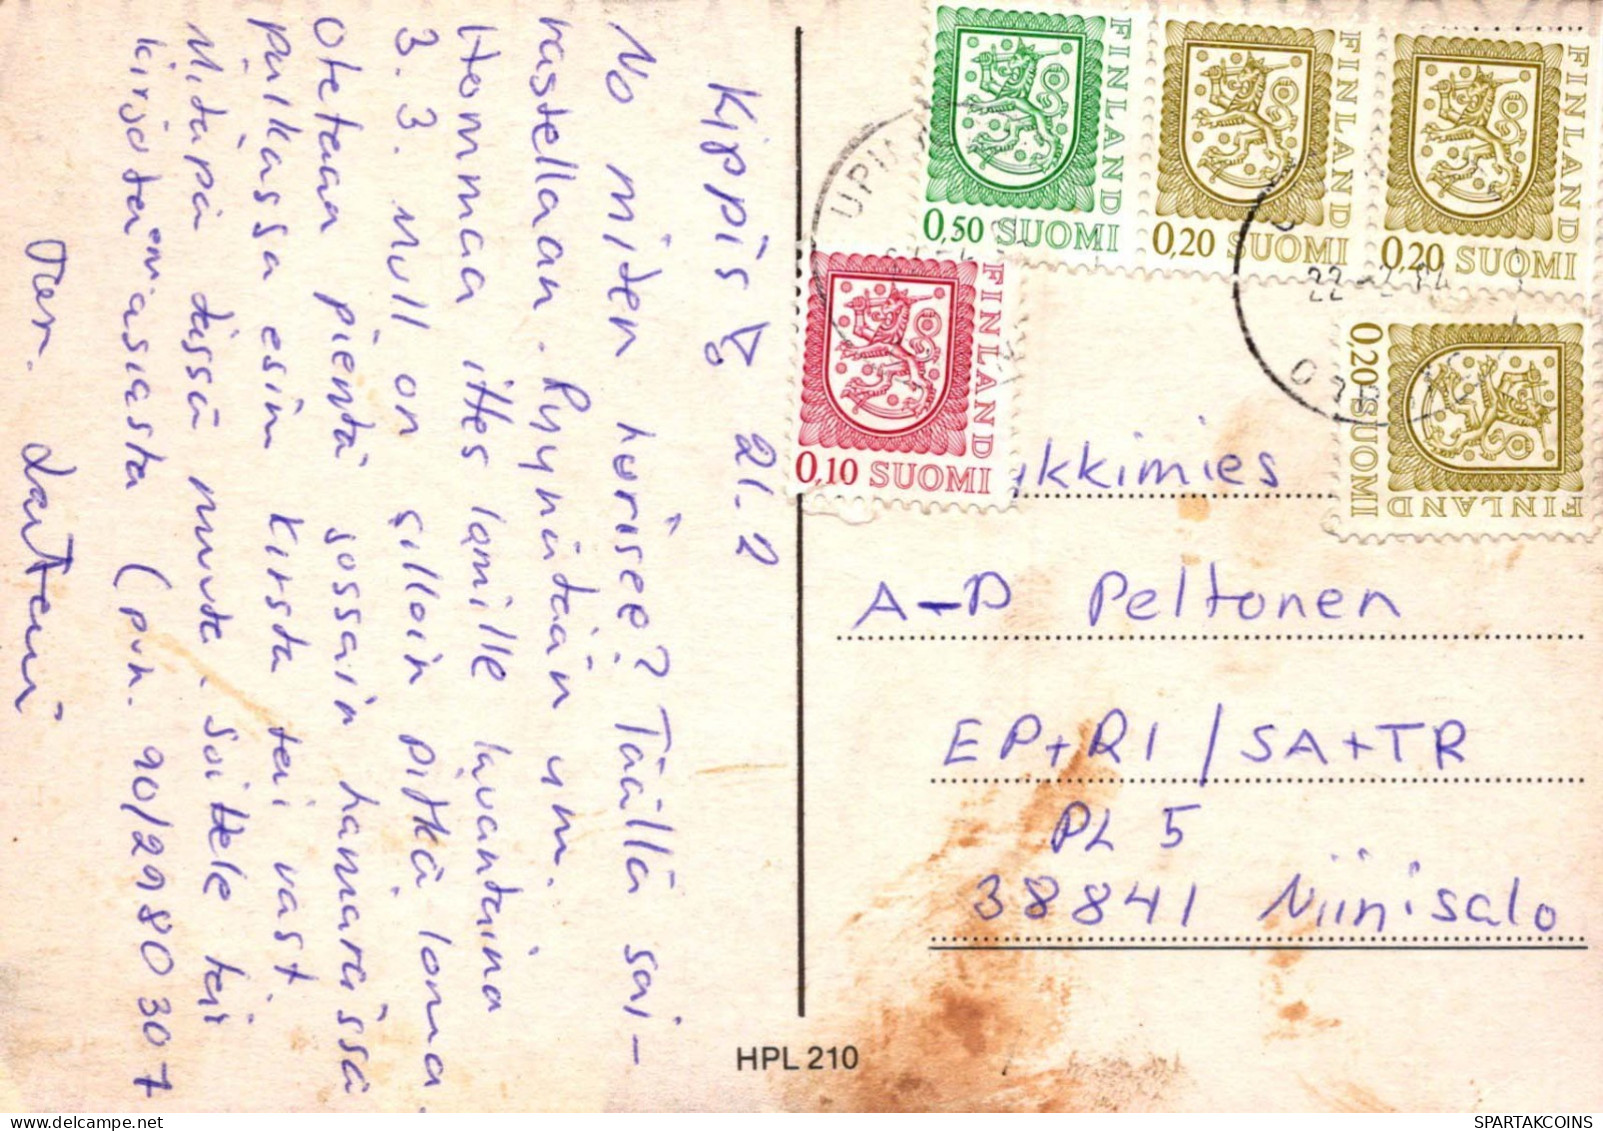 Kippis! 21.2
No miten hurisee? Täällä sai-
rastellaan. Ryynätään ym.
Hommaa ittes lomille lauantaina
3.3. mull on silloin pitkä loma.
Otetaan pientä jossain hämärässä
paikassa esim Kirsta tai vast.
Mitäpä tässä muuta. Soittele tai
kirjota em asiasta (puh. 90/2980307
Ter. Lauttemi
FINLAND
0,50 SUOMI
FINLAND
0,20 SUOMI
FINLAND
0,20 SUOMI
FINLAND
0,10 SUOMI
0,20 SUOMI
FINLAND
22
kkimies
A-P Peltonen
EP+RI/SA+TR
PL 5
38841 Niinisalo
HPL 210
SPARTAKCOINS